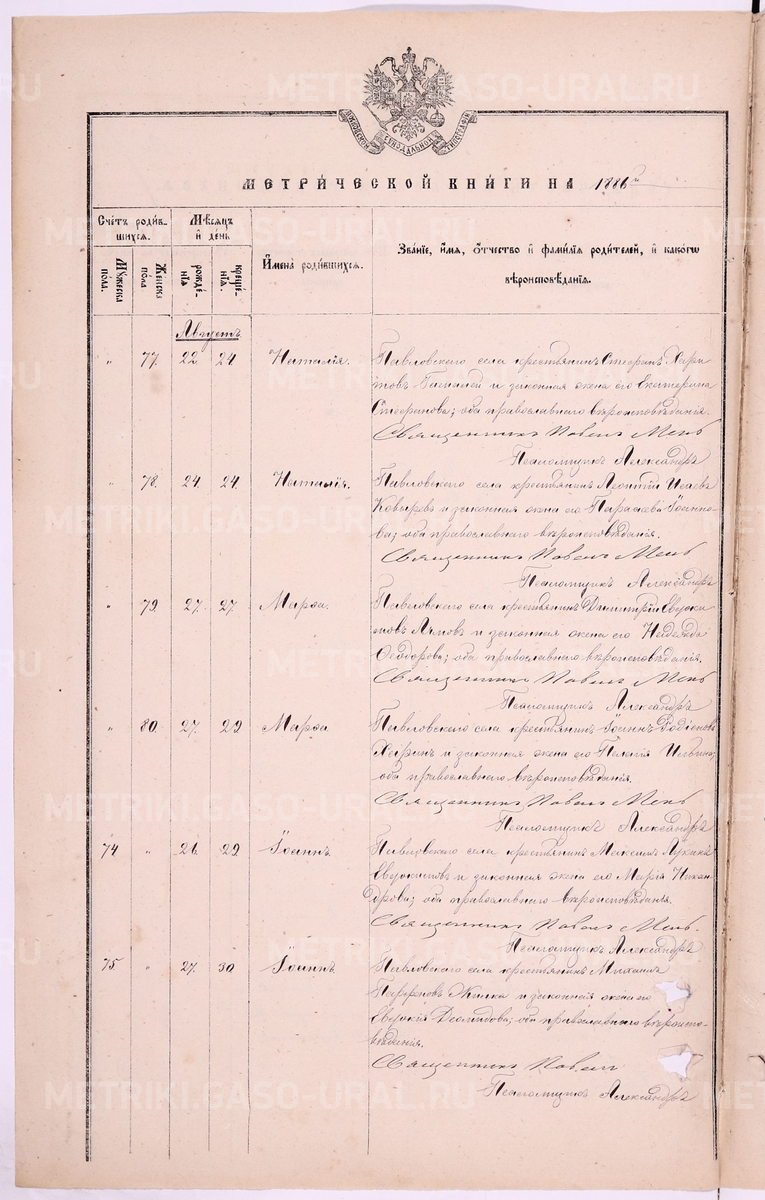 МОСКОВСКОЙ СѴНОДАЛЬНОЙ ТИПОГРАФІИ
МЕТРИ́ЧЕСКОЙ КНИ́ГИ НА 1886
Сче́тъ роди́в-
шихся.
Мѣ́сяцъ
и день
Мꙋжеска
по́ла.
Же́нска
по́ла
рожде́-
нїѧ
креще́-
нїѧ.
И҆мена̀ роди́вшихся.
Зва́нїе, и҆́мѧ, ѻ҆́тчество и҆ фамилїѧ роди́телей, и҆ како́гѡ
вѣроисповѣ́данїѧ.
Августъ
" 77. 22 24 Наталія. Павловскаго села крестьянинъ Стефанъ Хари-
товъ и законная жена его Екатерина
Стефанова; оба православнаго вѣроисповѣданія.
Священникъ Павелъ Мень
Псаломщикъ Александръ
" 78. 24. 24. Наталія. Павловскаго села крестьянинъ Леонтій Исаевъ
Ковыревъ и законная жена его Параскева Іоанно-
ва; оба православнаго вѣроисповѣданія.
Священникъ Павелъ Мень
Псаломщикъ Александръ
" 79. 27. 27. Марѳа. Павловскаго села крестьянинъ Димитрій
и законная жена его Надежда
Ѳеодорова; оба православнаго вѣроисповѣданія.
Священникъ Павелъ Мень
Псаломщикъ Александръ
" 80. 27. 29 Марѳа Павловскаго села крестьянинъ Іоаннъ Родіоновъ
и законная жена его Пелагія Ильина;
оба православнаго вѣроисповѣданія.
Священникъ Павелъ Мень
Псаломщикъ Александръ
74 " 26. 29 Іоаннъ. Павловскаго села крестьянинъ Максимъ Лукинъ
Евдокимовъ и законная жена его Марія Никан-
дрова; оба православнаго вѣроисповѣданія.
Священникъ Павелъ Мень.
Псаломщикъ Александръ
75. " 27. 30. Іоаннъ Павловскаго села крестьянинъ Михаилъ
Парѳеновъ и законная жена его
Евдокія Деомидова; оба православнаго вѣроиспо-
вѣданія.
Священникъ Павелъ
Псаломщикъ Александръ
METRIKI.GASO-URAL.RU